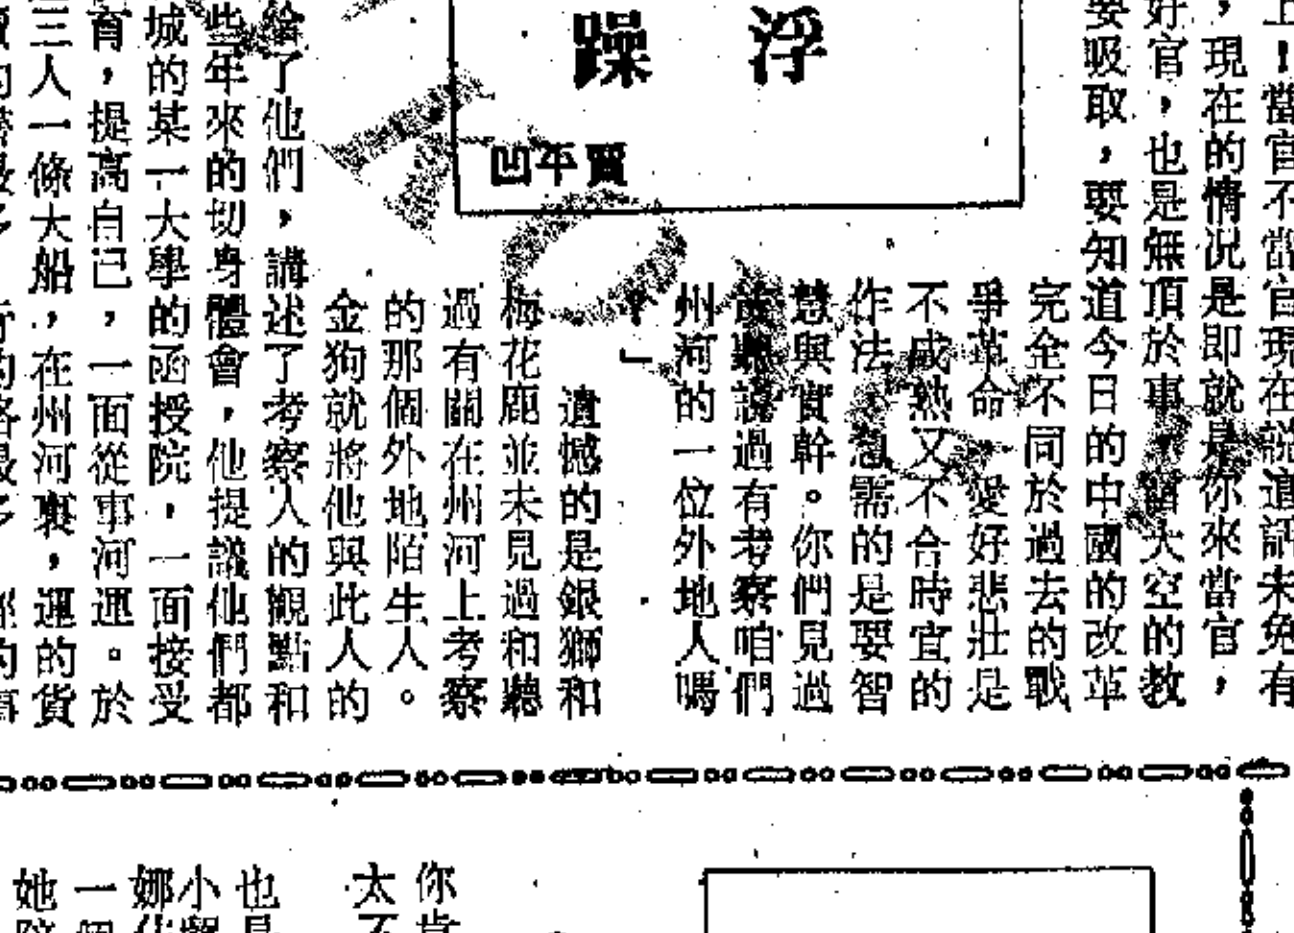 浮躁
賈平凹
上！當官不當官現在說這話未免有
，現在的情況是即就是你來當官，
好官，也是無頂於事，大空的教
要吸取，要知道今日的中國的改革
完全不同於過去的戰
爭革命，愛好悲壯是
不成熟又不合時宜的
作法，急需的是要智
慧與實幹。你們見過
聽說過有考察咱們
州河的一位外地人嗎
？」
遺憾的是銀獅和
梅花鹿並未見過和聽
過有關在州河上考察
的那個外地陌生人。
金狗就將他與此人的
給了他們，講述了考察人的觀點和
些年來的切身體會，他提議他們都
城的某一大學的函授院，一面接受
育，提高自己，一面從事河運。於
三人一條大船，在州河裏，運的貨
你肯
太不
也是
小
娜
一個
她陪